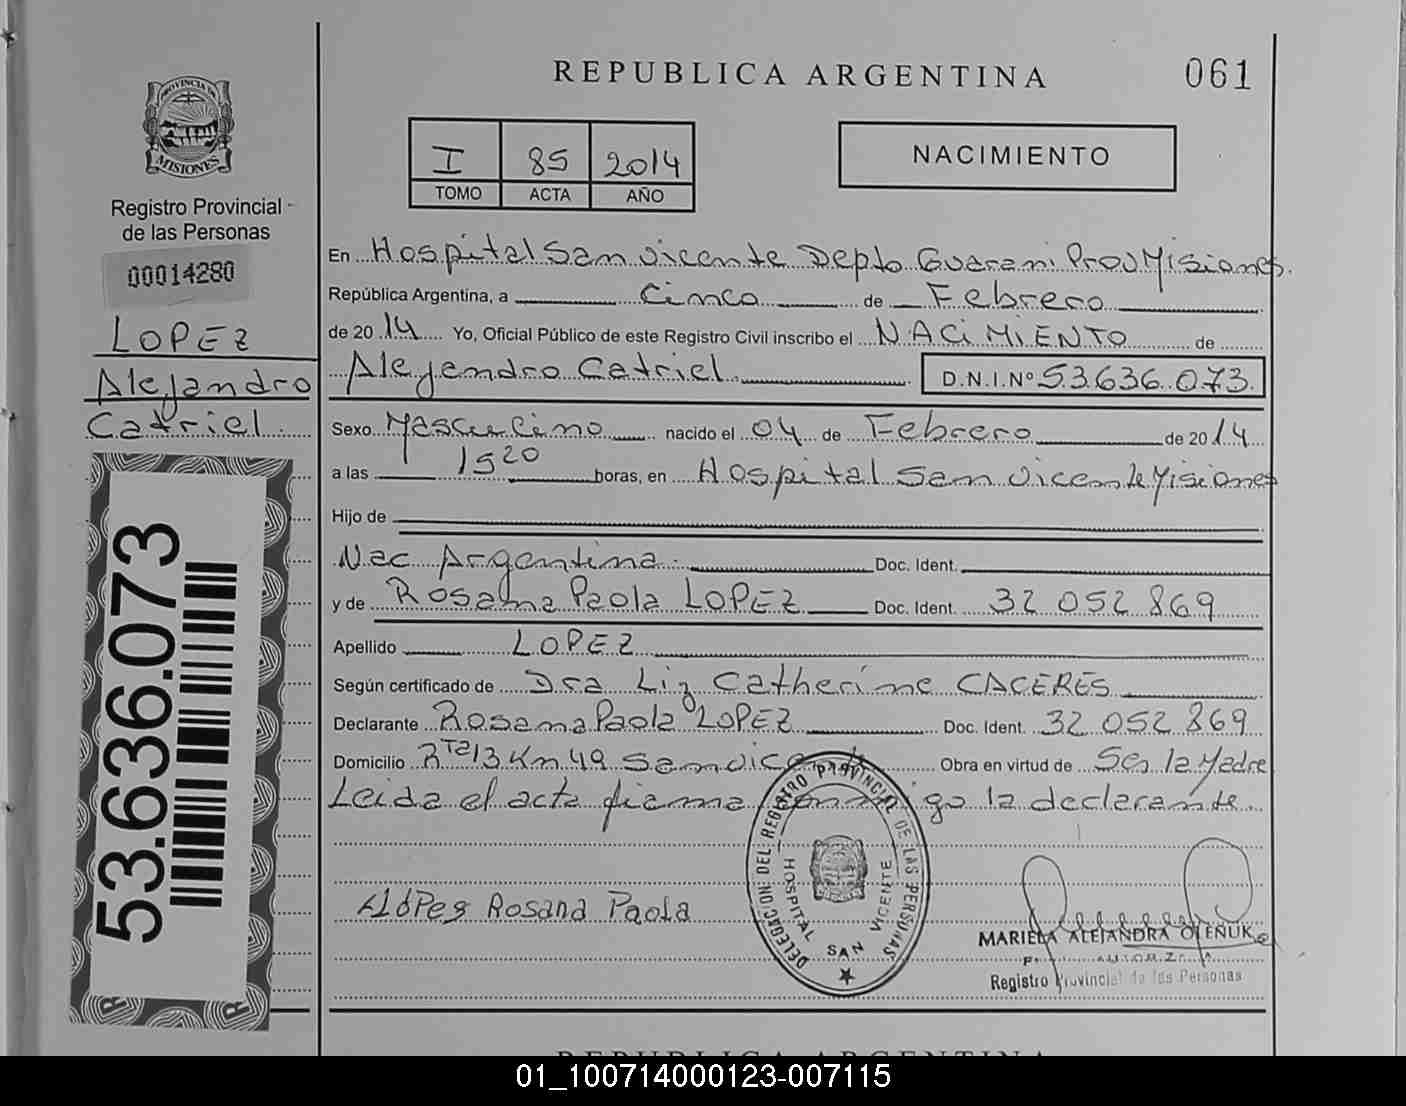 REPUBLICA ARGENTINA
061
PROVINCIA DE
MISIONES
Registro Provincial
de las Personas
00014280
LOPEZ
Alejandro
Catriel
53.636.073
I 85 2014
TOMO ACTA AÑO
NACIMIENTO
En Hospital San Vicente Depto Guarani Prov Misiones.
República Argentina, a Cinco de Febrero
de 2014 Yo, Oficial Público de este Registro Civil inscribo el NACIMIENTO de
Alejandro Catriel D.N.I.Nº 53.636.073
Sexo Masculino nacido el 04 de Febrero de 2014
a las 15 20 horas, en Hospital San Vicente Misiones
Hijo de
Nac Argentina Doc. Ident.
y de Rosana Paola LOPEZ Doc. Ident. 32 052 869
Apellido LOPEZ
Según certificado de Dra Liz Catherine CACERES
Declarante Rosana Paola LOPEZ Doc. Ident. 32 052 869
Domicilio Rta 13 Km 49 San Vicente Obra en virtud de Ser la Madre
Leida el acta firma conmigo la declarante
LOPes Rosana Paola
DELEGACION DEL REGISTRO PROVINCIAL DE LAS PERSONAS
HOSPITAL SAN VICENTE
MARIELA ALEJANDRA OLEÑUK
Registro Provincial de las Personas
REPUBLICA ARGENTINA
01_100714000123-007115